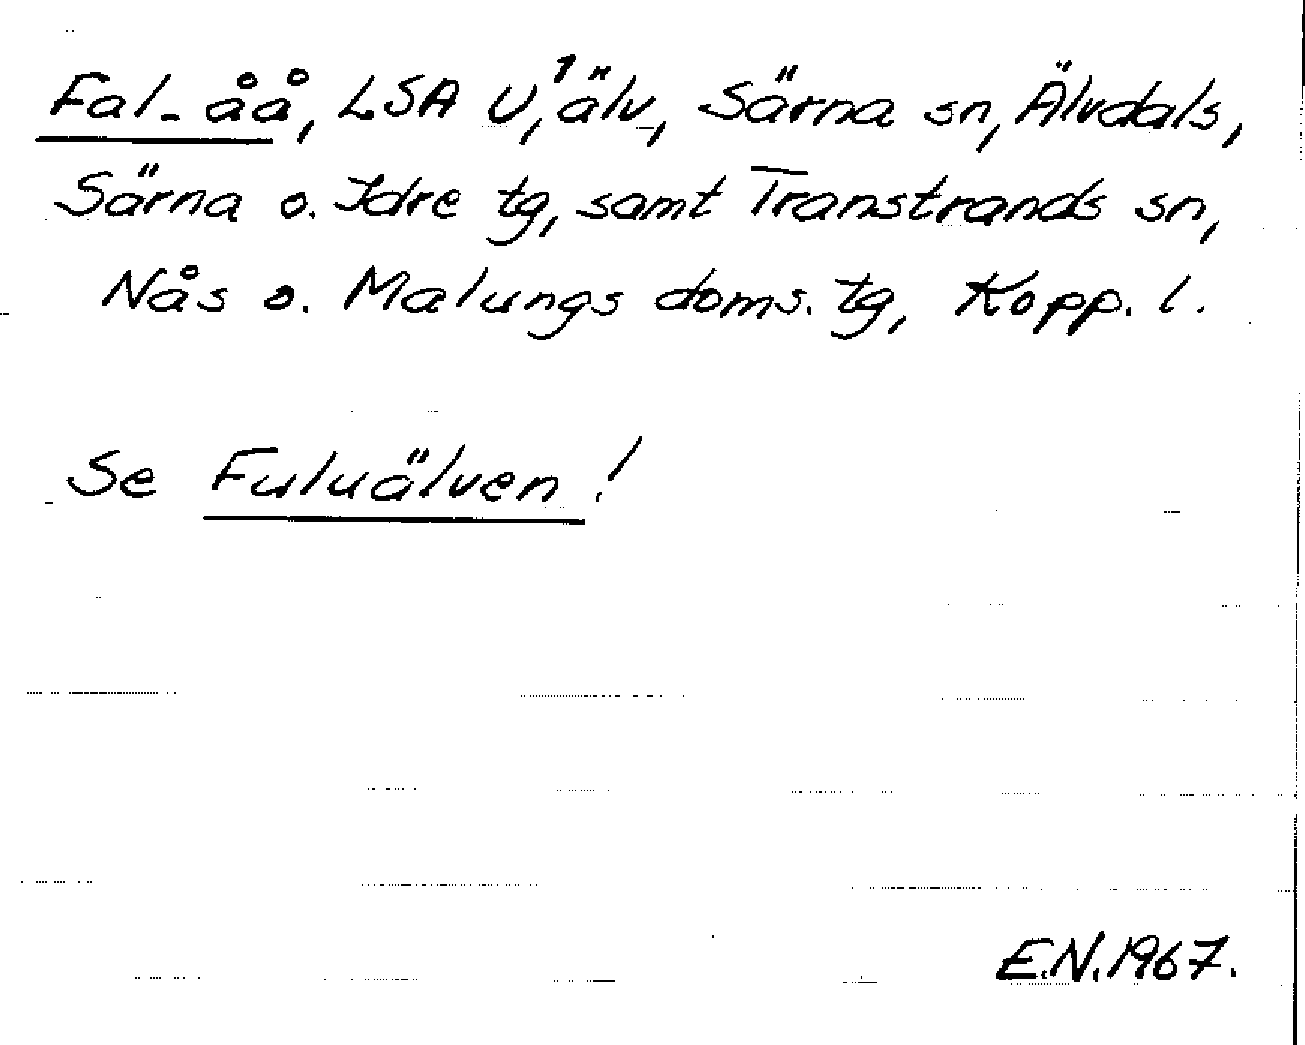 Fal-åå, LSA U,¹ älv, Särna sn, Älvdals,
Särna o. Idre tg, samt Transtrands sn,
Nås o. Malungs doms. tg, Kopp. l.
Se Fuluälven!
E.N. 1967.